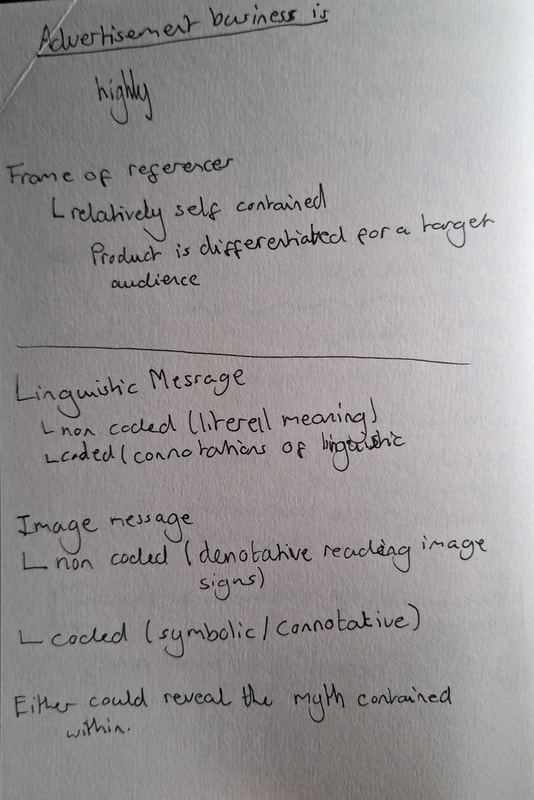 Advertisement business is
highly
Frame of references
relatively self contained
Product is differentiated for a target
audience
Linguistic Message
non coded (literal meaning)
coded (connotations of linguistic
Image message
non coded (denotative reading image
signs)
coded (symbolic/connotative)
Either could reveal the myth contained
within.